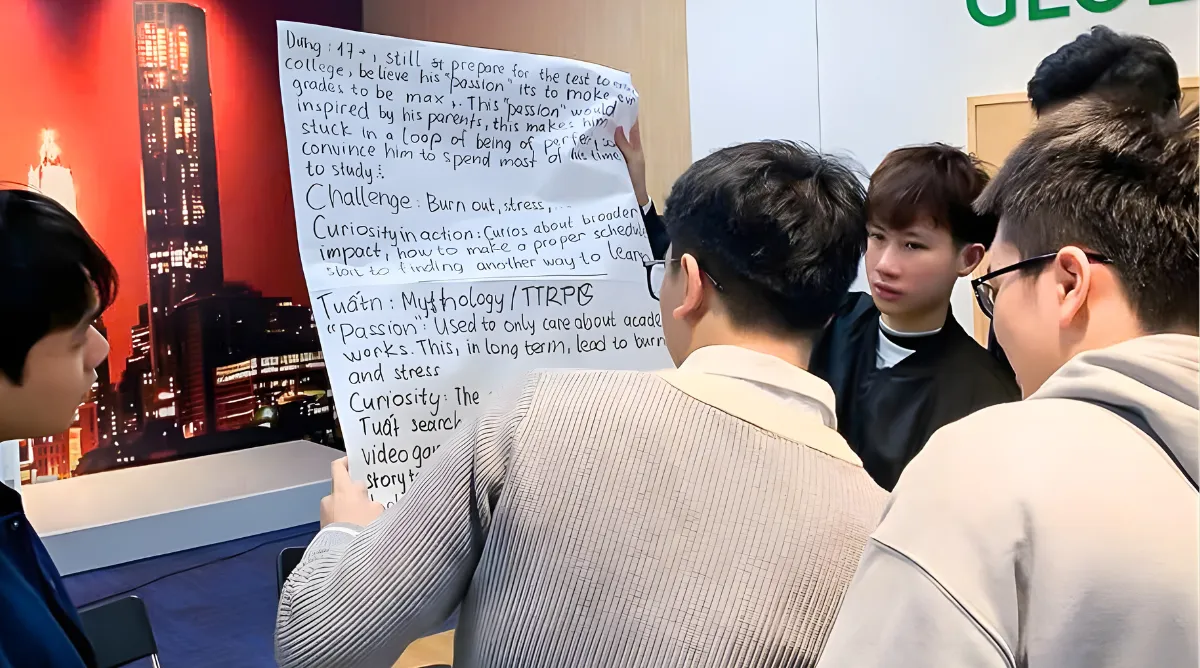 GLOB
Dưng : 17+, still prepare for the test to
college, believe his "passion" its to make
grades to be max. This "passion" would
inspired by his parents, this makes him
stuck in a loop of being of perfect, so
convince him to spend most of his time
to study...
Challenge : Burn out, stress, ...
Curiosity in action : Curios about broader
impact, how to make a proper schedul
start to finding another way to learn
Tuấtn : Mythology / TTRPG
"Passion" : Used to only care about acade
works. This, in long term, lead to burn
and stress
Curiosity : The
Tuất search
video gam
story t